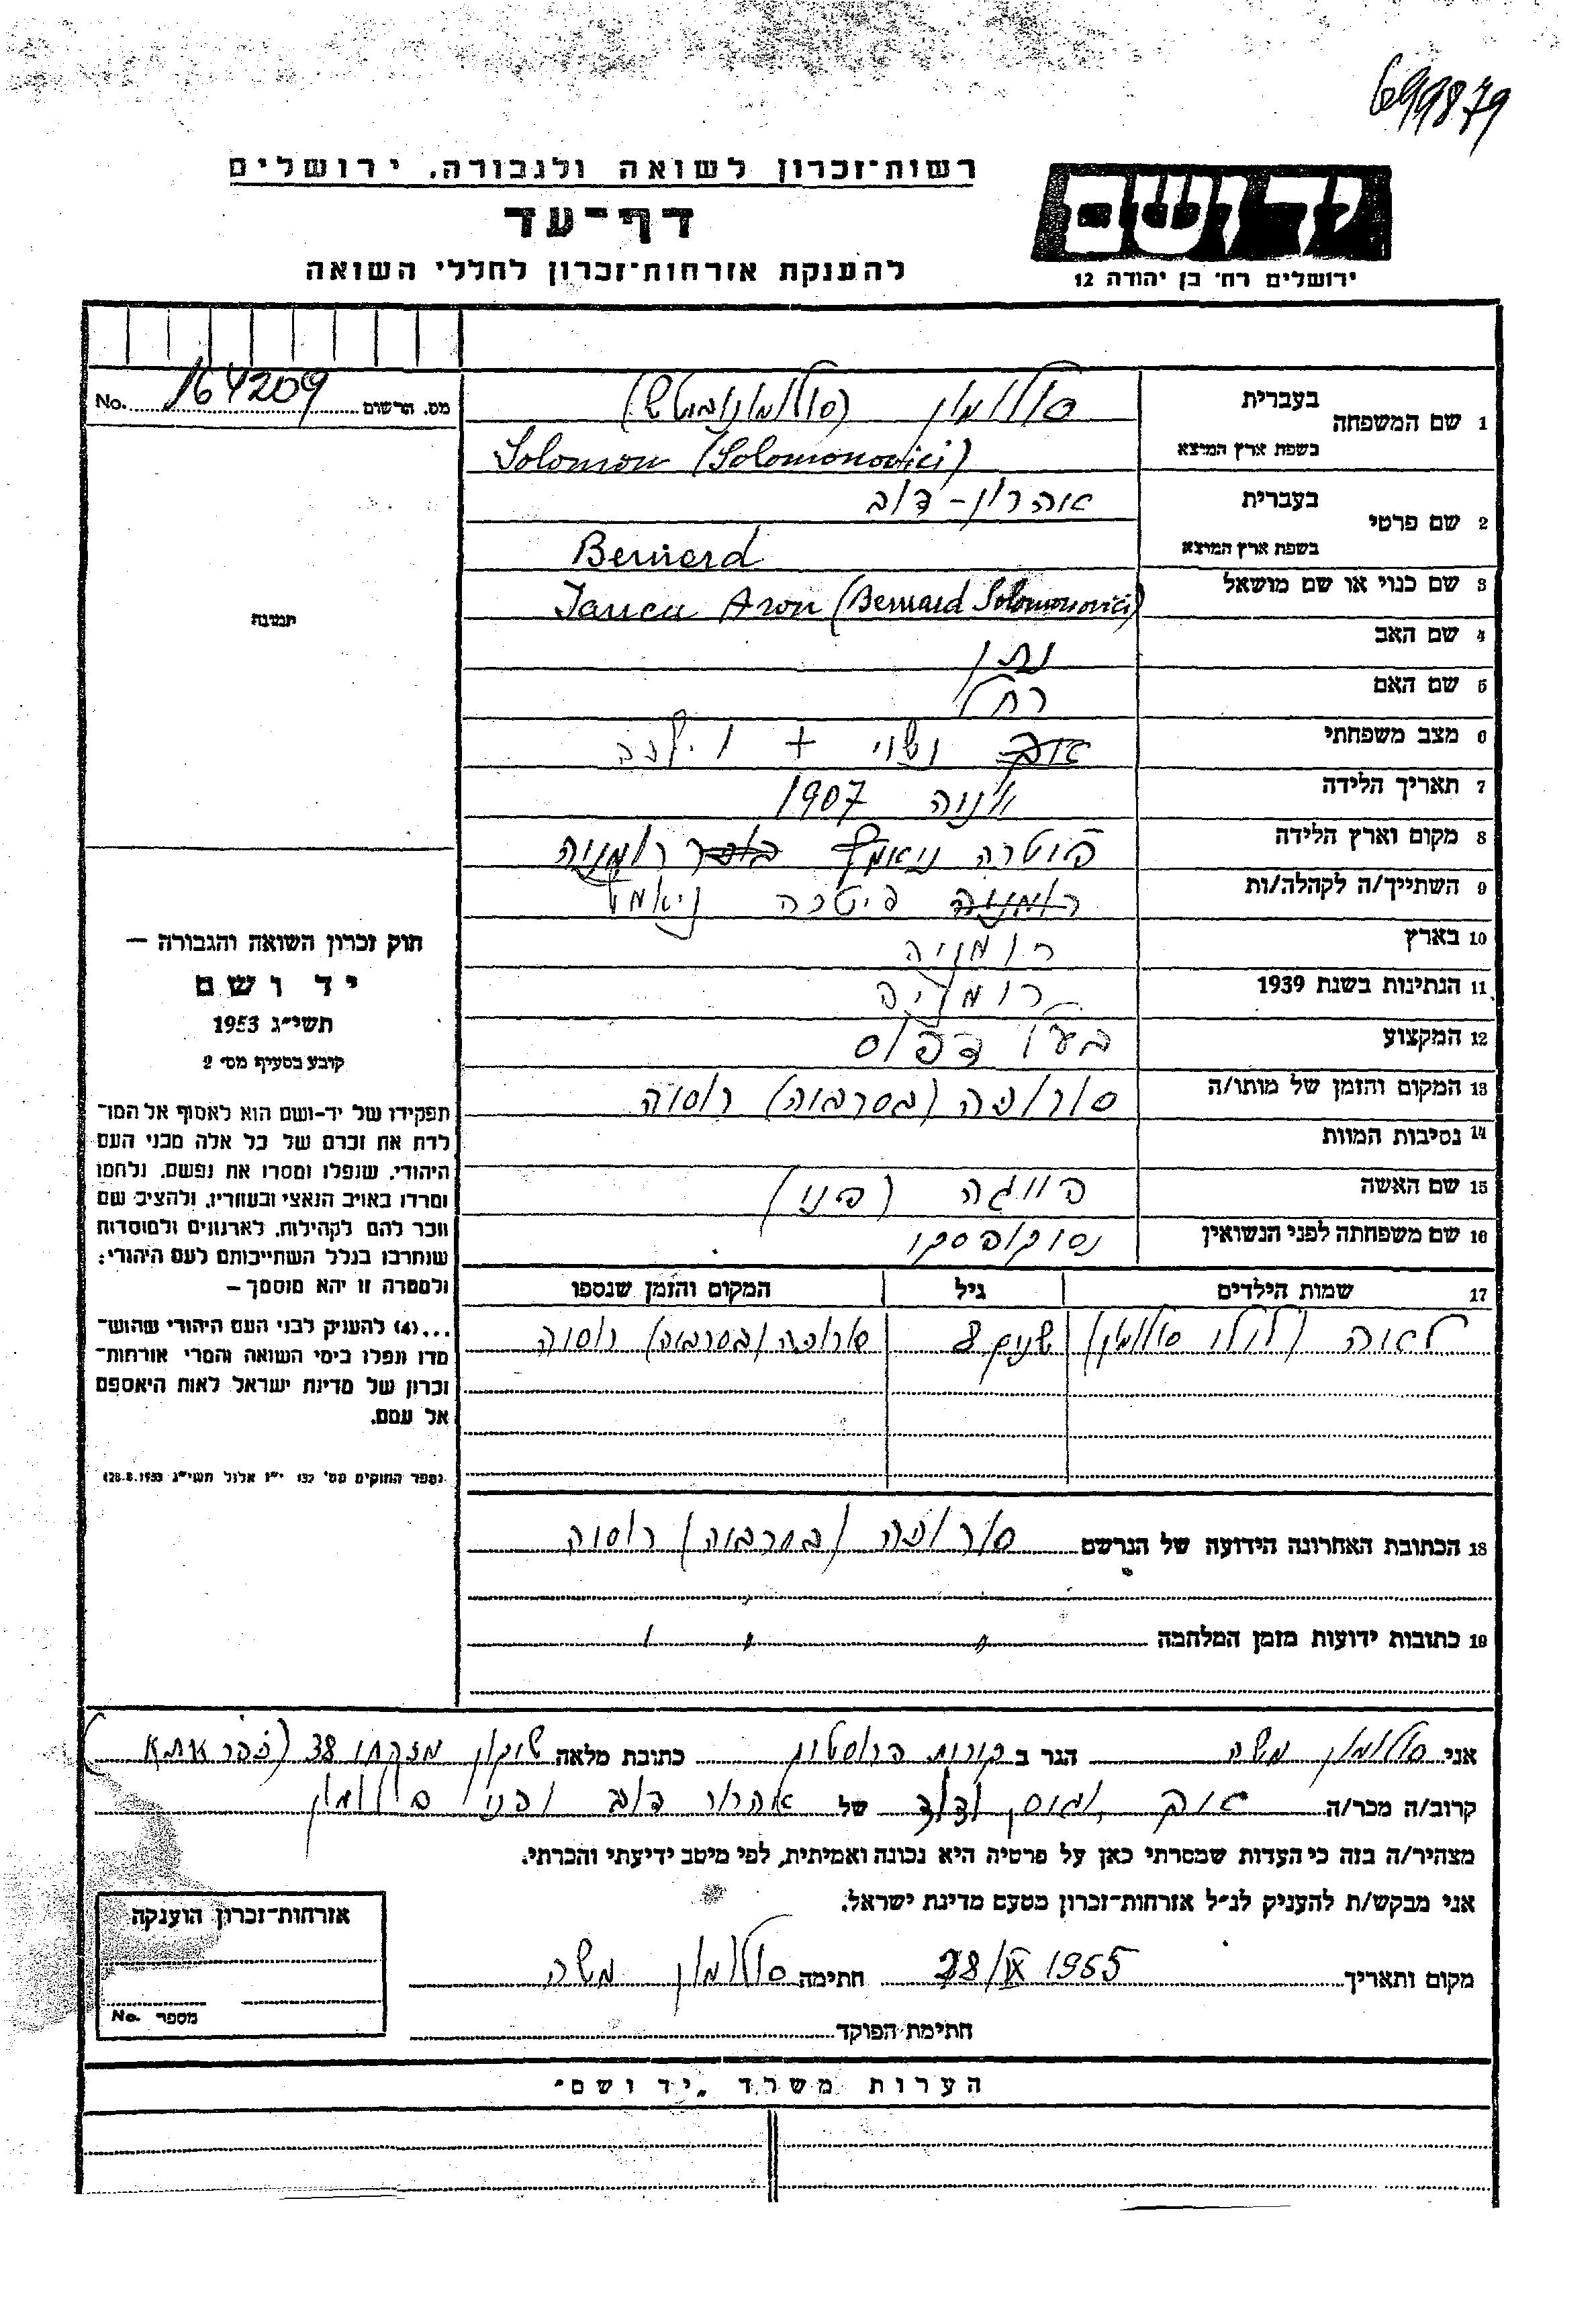 699879
רשות־זכרון לשואה ולגבורה. ירושלים
דף־עד
להענקת אזרחות־זכרון לחללי השואה
יד ושם
ירושלים רח׳ בן יהודה 12
מס. הרשום 164209 No.
1 שם המשפחה בעברית סולומון (סולומונוביטש)
בשפת ארץ המוצא Solomon (Solomonovici)
2 שם פרטי בעברית אהרון - דוב
בשפת ארץ המוצא Bernard
3 שם כנוי או שם מושאל Iancu Aron (Bernard Solomonovici)
4 שם האב נתן
5 שם האם רחל
6 מצב משפחתי נשוי + 1 ילדה
7 תאריך הלידה 1907
8 מקום וארץ הלידה פיטרה ניאמץ רומניה
9 השתייך/ה לקהלה/ות פיטרה ניאמץ
10 בארץ רומניה
11 הנתינות בשנת 1939 רומניה
12 המקצוע בעל דפוס
13 המקום והזמן של מותו/ה סורוקה (בסרביה) רוסיה
14 נסיבות המוות
15 שם האשה פייגה (פני)
16 שם משפחתה לפני הנשואין
17 שמות הילדים גיל המקום והזמן שנספו
לאורה (לולו סולומון) 8 שנים סורוקה (בסרביה) רוסיה
18 הכתובת האחרונה הידועה של הנרשם סורוקה (בסרביה) רוסיה
19 כתובות ידועות מזמן המלחמה " " "
תמונה
חוק זכרון השואה והגבורה —
יד ושם
תשי״ג 1953
קובע בסעיף מס׳ 2
תפקידו של יד-ושם הוא לאסוף אל המו־
לדת את זכרם של כל אלה מבני העם
היהודי, שנפלו ומסרו את נפשם, נלחמו
ומרדו באויב הנאצי ובעוזריו, ולהציב שם
וזכר להם לקהילות, לארגונים ולמוסדות
שנחרבו בגלל השתייכותם לעם היהודי;
ולמטרה זו יהא מוסמך —
...(4) להעניק לבני העם היהודי שהוש־
מדו ונפלו בימי השואה והמרי אזרחות־
זכרון של מדינת ישראל לאות היאספם
אל עמם.
(ספר החוקים מס׳ 132 י״ז אלול תשי״ג 28.8.1953)
אני סולומון משה הגר ב קורות כתובת מלאה שיכון 38 (כפר אתא)
קרוב/ה מכר/ה של אהרון דוב ופני סולומון
מצהיר/ה בזה כי העדות שמסרתי כאן על פרטיה היא נכונה ואמיתית, לפי מיטב ידיעתי והכרתי.
אני מבקש/ת להעניק לנ״ל אזרחות־זכרון מטעם מדינת ישראל.
מקום ותאריך 28/IX 1955 חתימה סולומון משה
חתימת הפוקד
אזרחות־זכרון הוענקה
מספר No.
הערות משרד „יד ושם״